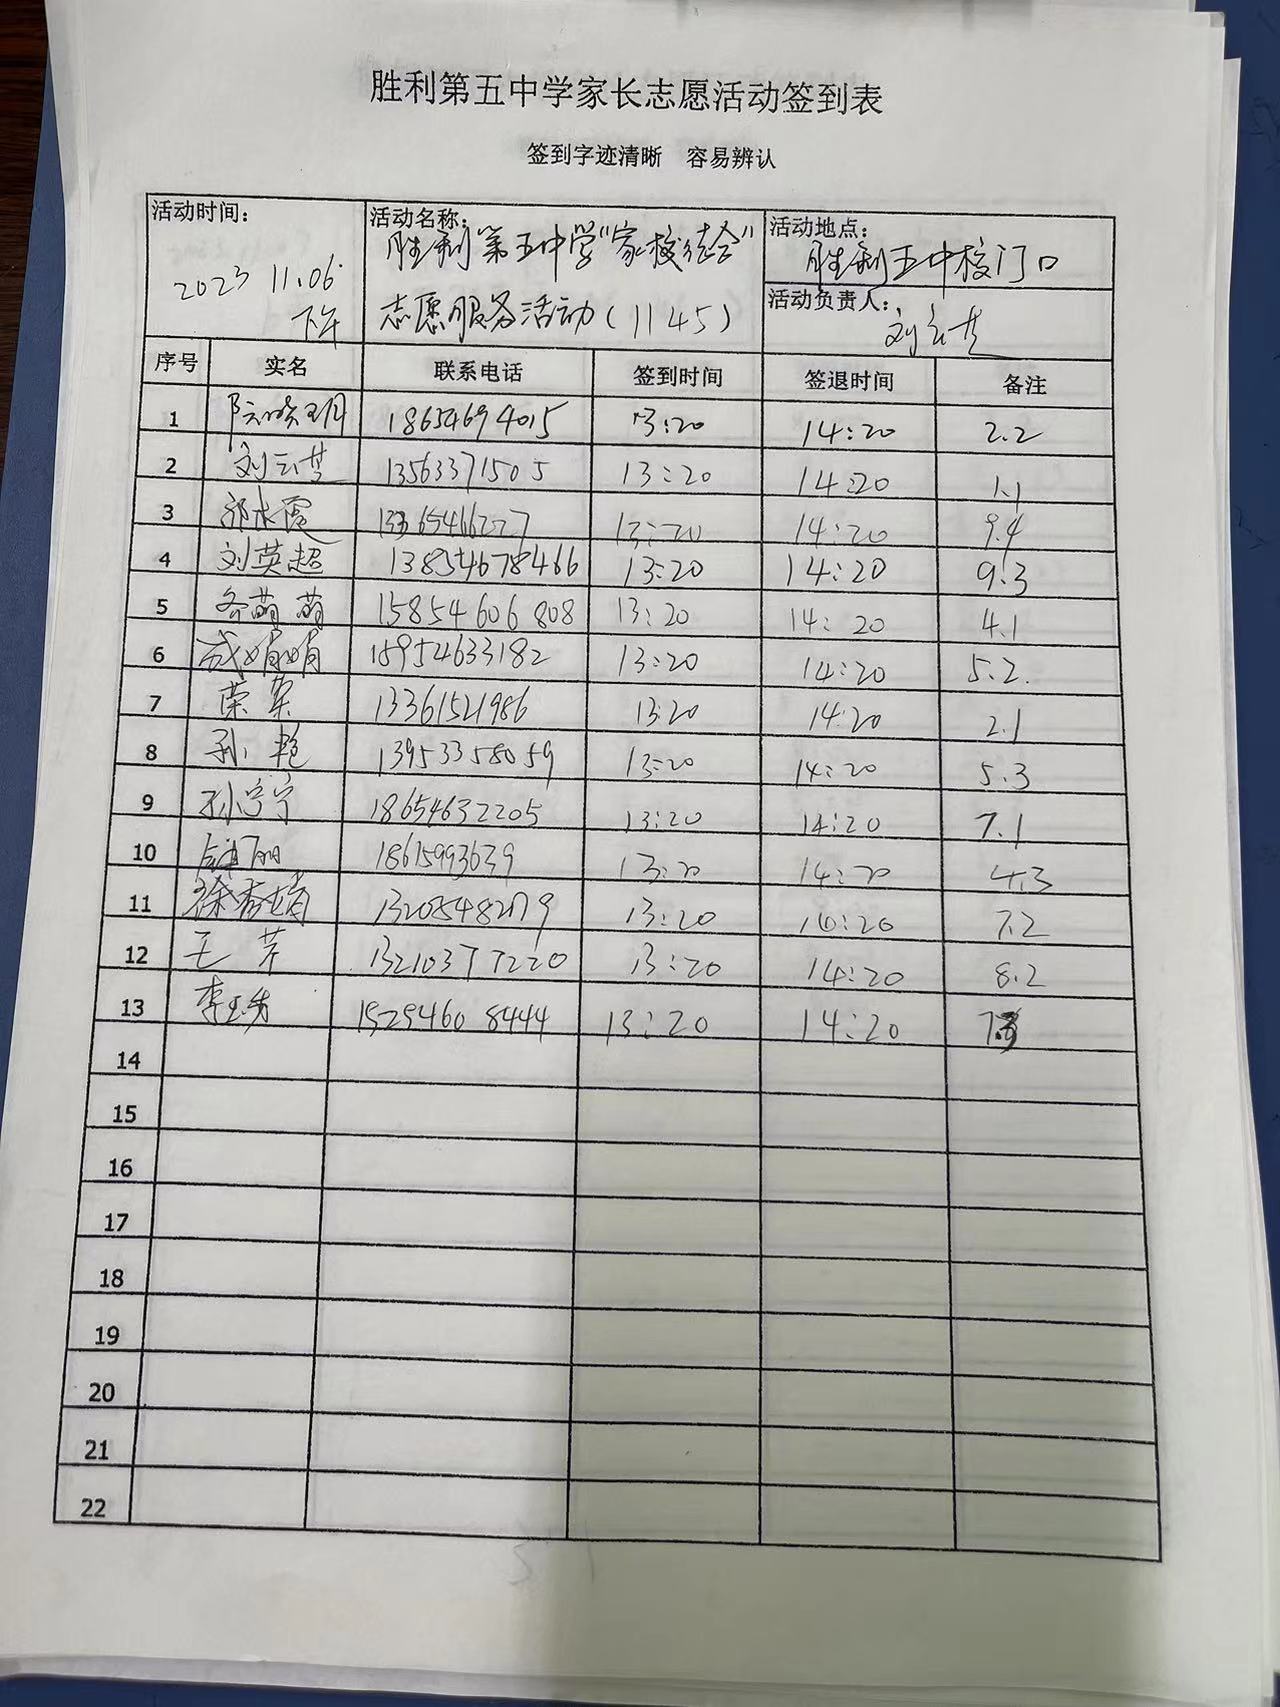 胜利第五中学家长志愿活动签到表
签到字迹清晰 容易辨认
活动时间:
2023 11.06.
下午
活动名称:
胜利第五中学"家校结合"
志愿服务活动(1145)
活动地点:
胜利五中校门口
活动负责人:
刘云芝
序号 实名 联系电话 签到时间 签退时间 备注
1 18654694015 13:20 14:20 2.2
2 刘云芝 13563371505 13:20 14:20 1.1
3 13365466227 13:20 14:20 9.4
4 刘英超 13854678466 13:20 14:20 9.3
5 萌萌 15854606808 13:20 14:20 4.1
6 成娟娟 15954633182 13:20 14:20 5.2.
7 荣军 13361521986 13:20 14:20 2.1
8 孙艳 13953358059 13:20 14:20 5.3
9 孙宁宁 18654632205 13:20 14:20 7.1
10 18615993639 13:20 14:20 4.3
11 徐春娟 13:20 14:20 7.2
12 王芹 13210377220 13:20 14:20 8.2
13 李玉秀 15294608444 13:20 14:20 7.3
14
15
16
17
18
19
20
21
22